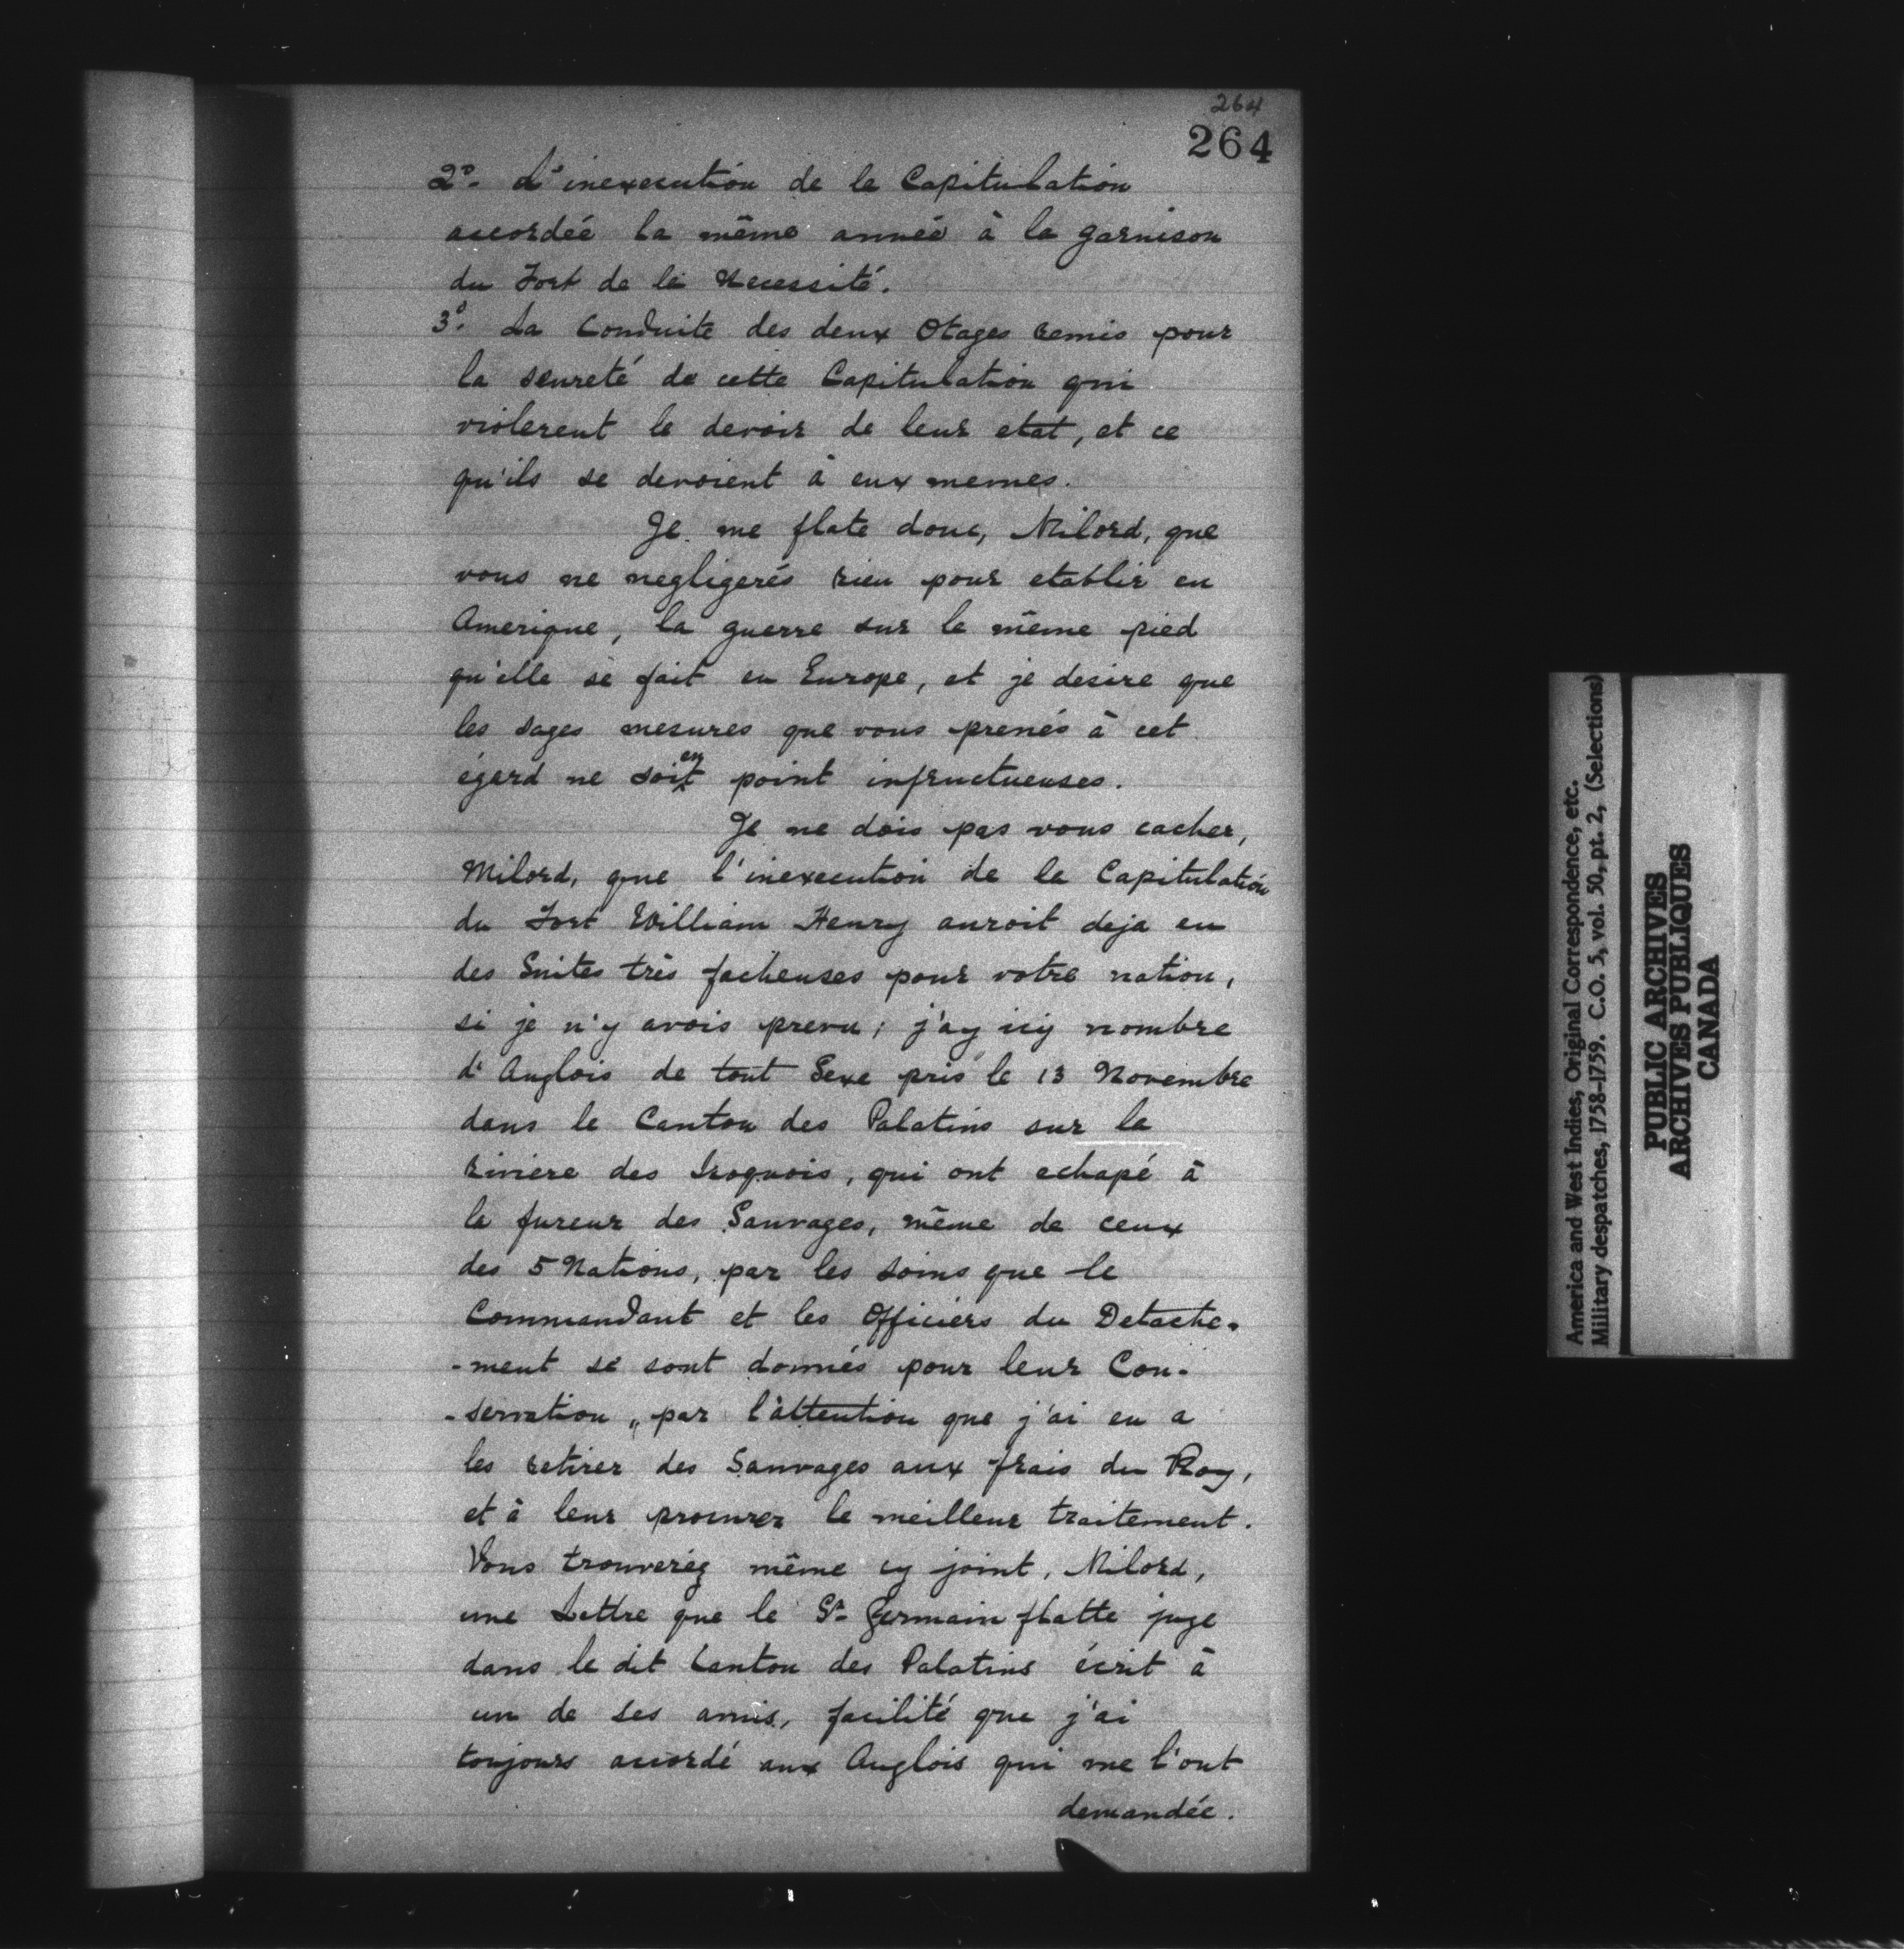 264
264
2º. L'inexecution de la Capitulation
accordée la même année à la garnison
du Fort de la Necessité.
3º. La Conduite des deux Otages remis pour
la seureté de cette Capitulation qui
violerent le devoir de leur etat, et ce
qu'ils se devoient à eux memes.
Je me flate donc, Milord, que
vous ne negligerés rien pour etablir en
Amerique, la guerre sur le même pied
qu'elle se fait en Europe, et je desire que
les sages mesures que vous prenés à cet
égard ne soient point infructueuses.
Je ne dois pas vous cacher,
Milord, que l'inexecution de la Capitulation
du Fort William Henry auroit deja eu
des Suites très facheuses pour votre nation,
si je n'y avois prevu; j'ay icy nombre
d'Anglois de tout Sexe pris le 13 Novembre
dans le Canton des Palatins sur la
riviere des Iroquois, qui ont echapé à
la fureur des Sauvages, même de ceux
des 5 Nations, par les soins que le
Commandant et les Officiers du Detache-
-ment se sont donnés pour leur Con-
-servation, par l'attention que j'ai eu a
les retirer des Sauvages aux frais du Roy,
et à leur procurer le meilleur traitement.
Vous trouveréz même cy joint, Milord,
une Lettre que le Sr. Germain flatte juge
dans le dit Canton des Palatins écrit à
un de ses amis, facilité que j'ai
toujours accordé aux Anglois qui me l'ont
demandée.
America and West Indies, Original Correspondence, etc.
Military despatches, 1758-1759. C.O. 5, vol. 50, pt. 2, (Selections)
PUBLIC ARCHIVES
ARCHIVES PUBLIQUES
CANADA